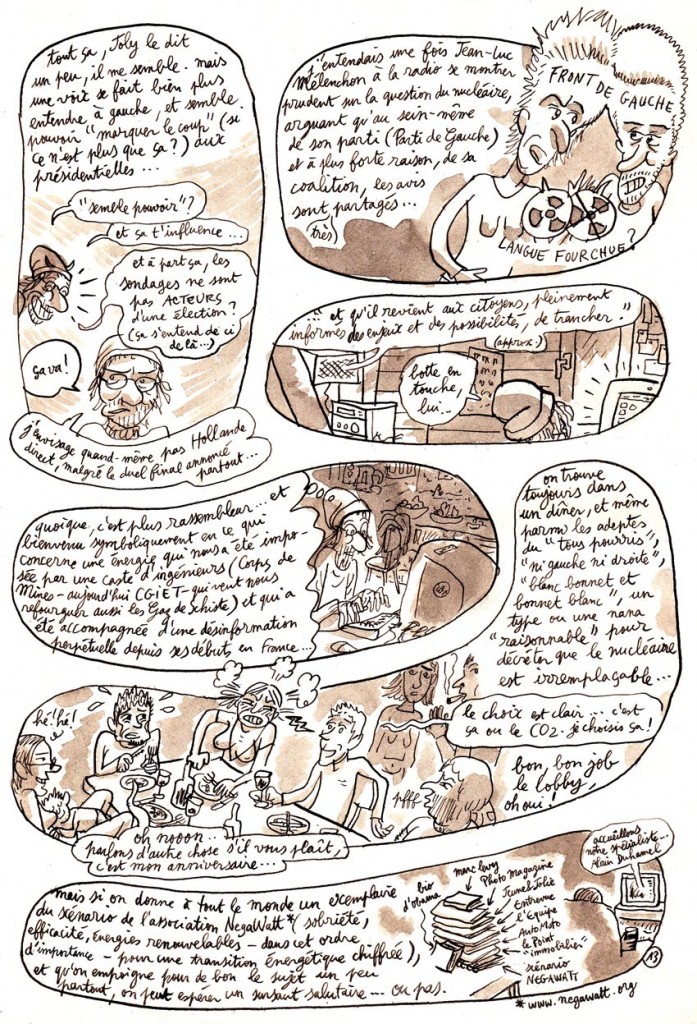 tout ça, Joly le dit
un peu, il me semble. mais
une voix se fait bien plus
entendre à gauche, et semble
pouvoir "marquer le coup" (si
ce n'est plus que ça?) aux
présidentielles...
"semble pouvoir"?
et ça t'influence...
et à part ça, les
sondages ne sont
pas ACTEURS
d'une élection?
(ça s'entend de ci
de là...)
ça va!
j'envisage quand-même pas Hollande
direct, malgré le duel final annoncé
partout...
j'entendais une fois Jean-Luc
Mélenchon à la radio se montrer
prudent sur la question du nucléaire,
arguant qu'au sein-même
de son parti (Parti de Gauche)
et à plus forte raison, de sa
coalition, les avis
sont partagés...
(très)
FRONT DE GAUCHE
LANGUE FOURCHUE?
"... et qu'il revient aux citoyens, pleinement
informés des enjeux et des possibilités, de trancher."
(approx.)
botte en
touche,
lui...
quoique, c'est plus rassembleur... et
bienvenu symboliquement en ce qui
concerne une énergie qui nous a été impo-
sée par une caste d'ingénieurs (Corps des
Mines - aujourd'hui CGIET - qui veut nous
refourguer aussi les Gaz de Schiste) et qui a
été accompagnée d'une désinformation
perpétuelle depuis ses débuts, en France...
on trouve
toujours dans
un dîner, et même
parmi les adeptes
du "tous pourris",
"ni gauche ni droite",
"blanc bonnet et
bonnet blanc", un
type ou une nana
"raisonnable" pour
décréter que le nucléaire
est irremplaçable...
hé! hé!
le choix est clair... c'est
ça ou le CO2. je choisis ça!
pffff
bon, bon job
le lobby,
oh oui!
oh nooon...
parlons d'autre chose s'il vous plaît,
c'est mon anniversaire...
mais si on donne à tout le monde un exemplaire
du scénario de l'association NegaWatt* (sobriété,
efficacité, énergies renouvelables - dans cet ordre
d'importance - pour une transition énergétique chiffrée),
et qu'on empoigne pour de bon le sujet un peu
partout, on peut espérer un sursaut salutaire... ou pas.
bio
d'obama
marc levy
Photo Magazine
Jeune & Jolie
Entrevue
L'Équipe
Auto Moto
le Point
"immobilier"
scénario
NEGAWATT
accueillons
notre spécialiste...
Alain Duhamel
13
* www.negawatt.org